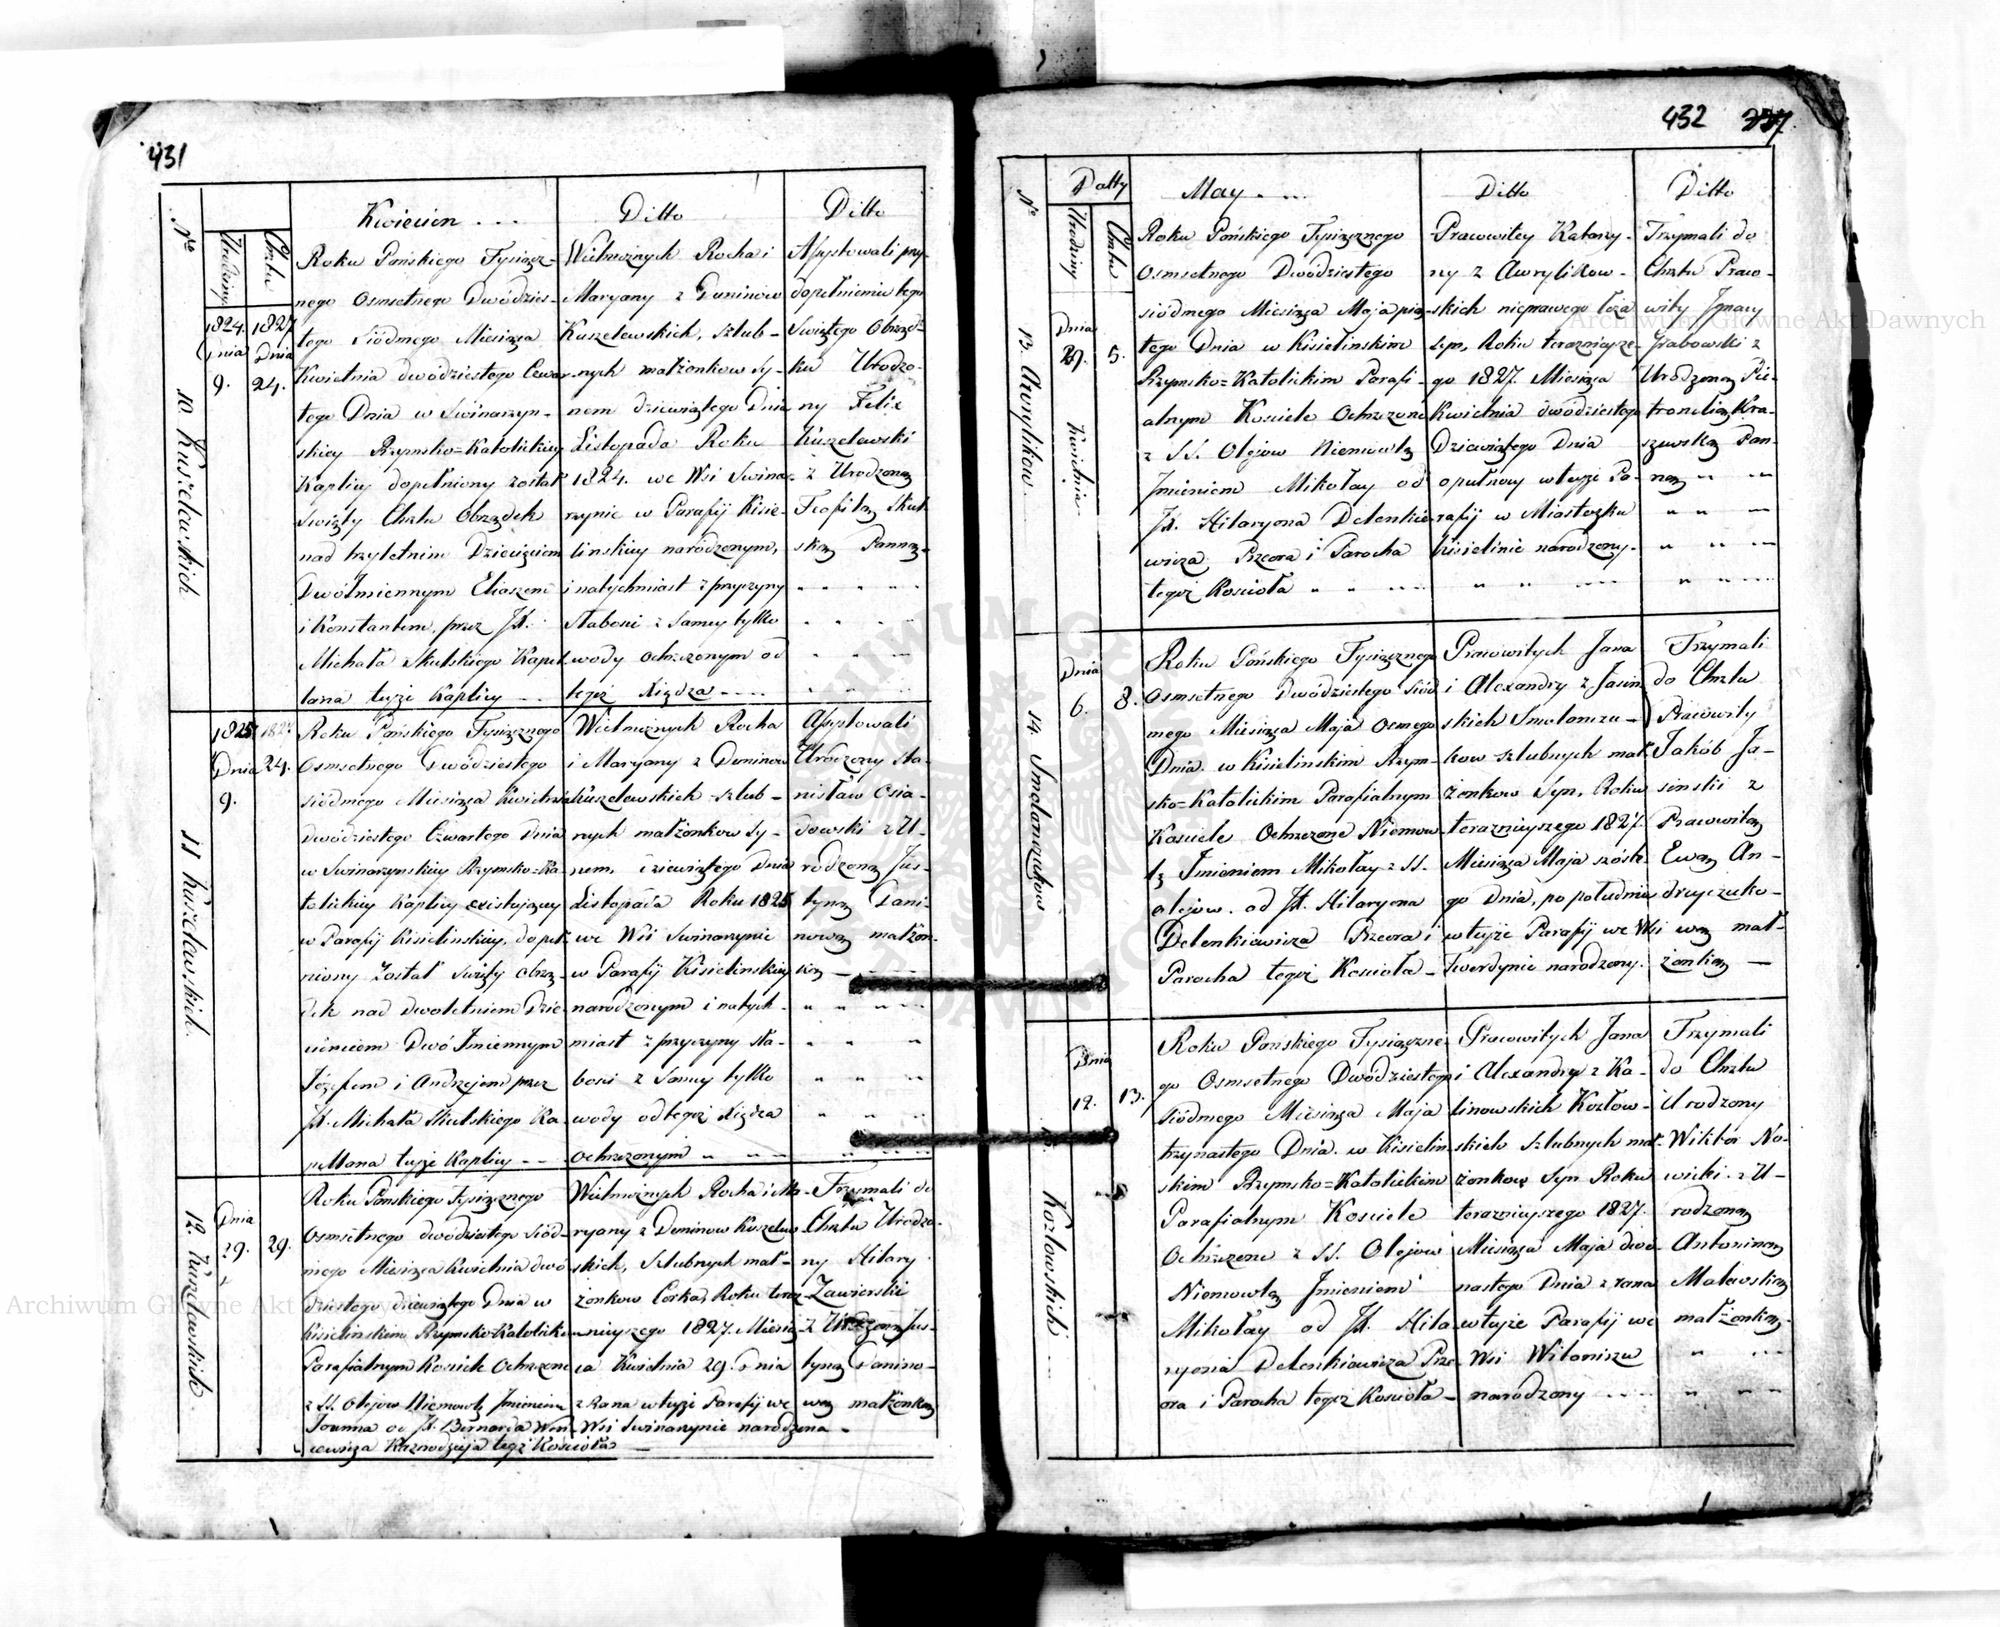 431
No
Urodziny
Chrztu
Kwiecien
Ditto
Ditto
1824.
Dnia
9.
1827
Dnia
24.
10. Kuszelewskich
Roku Pańskiego Tysiącz-
nego Osmsetnego Dwódzies-
tego Siódmego Miesiąca
Kwietnia dwódziestego Czwar-
tego Dnia w Swinarzyn-
skiey Rzymsko=Katolickiey
Kaplicy dopełniony został
Swięty Chrztu Obrządek
nad trzyletnim Dziecięciem
Dwóimiennym Eliaszem
i Konstantem, przez Jx.
Michała Skulskiego Kapel-
lana teyże Kaplicy
Wielmożnych Rocha i
Maryany z Duninow
Kuszelewskich, szlub-
nych małżonkow Sy-
nem dziewiątego Dnia
Listopada Roku
1824. we Wsi Swina-
rzynie w Parafij Kisie-
linskiey narodzonym,
i natychmiast z przyczyny
słabosci z Samey tylko
wody ochrzczonym od
tegoż Xiędza
Assystowali przy
dopełnieniu tego
Swiętego Obrząd-
ku Urodzo-
ny Felix
Kuszelewski
z Urodzoną
Teofilą Skul-
ską Panną
1825
Dnia
9.
1827
24.
11 Kuszelewskich.
Roku Pańskiego Tysiącznego
Osmsetnego Dwódziestego
siódmego Miesiąca Kwietnia
dwódziestego Czwartego Dnia
w Swinarzynskiey Rzymsko=Ka-
tolickiey Kaplicy exystującey
w Parafij Kisielinskiey, dopeł-
niony został Swięty obrzą-
dek nad dwoletniem Dzie-
cięciem Dwó Imiennym
Józefem i Andrzejem przez
Jx. Michała Skulskiego Ka-
pellana teyże Kaplicy
Wielmożnych Rocha
i Maryany z Duninow
Kuszelewskich szlub-
nych małżonkow Sy-
nem, dziewiątego Dnia
Listopada Roku 1825
we Wsi Swinarzynie
w Parafij Kisielinskiey
narodzonym i natych-
miast z przyczyny sła-
bosci z Samey tylko
wody od tegoż Xiędza
ochrzczonym
Assystowali
Urodzony Sta-
nisław Osia-
dowski z U-
rodzoną Jus-
tyną Pani-
nową małżon-
ką
Dnia
29.
29.
12. Kuszelewskich
Roku Pańskiego Tysiącznego
Osmsetnego dwódziestego Siód-
mego Miesiąca Kwietnia dwó-
dziestego dziewiątego Dnia w
Kisielinskim Rzymsko=Katolickim
Parafialnym Kosciele Ochrzczone
z SS. Olejow Niemowlę Imieniem
Joanna od Jx. Bernarda Won-
cewicza Kaznodzieja tegoż Kościoła
Wielmożnych Rocha i Ma-
ryany z Duninow Kuszelew-
skich, Szlubnych mał-
żonkow Corka, Roku teraz-
nieyszego 1827. Miesią-
ca Kwietnia 29. Dnia
z Rana w teyże Parafij we
Wsi Swinarzynie narodzona
Trzymali do
Chrztu Urodzo-
ny Hilary
Zawierski
z Urodzoną Jus-
tyną Panino-
wą małżonką
432
Datty
No
Urodziny
Chrztu
May
Ditto
Ditto
Dnia
29.
Kwietnia
5.
13. Awrylikow
Roku Pańskiego Tysiącznego
Osmsetnego Dwódziestego
siódmego Miesiąca Maja pią-
tego Dnia w Kisielinskim
Rzymsko=Katolickim Parafi-
alnym Kosciele Ochrzczone
z SS. Olejow Niemowlę
Jmieniem Mikołay od
Jx. Hilaryona Delenkie-
wicza, Przeora i Parocha
tegoż Kościoła
Pracowitey Katarzy-
ny z Awrylikow-
skich nieprawego łoża
Syn, Roku teraznieysze-
go 1827. Miesiąca
Kwietnia dwódziestego
Dziewiątego Dnia
o pułnocy w teyże Pa-
rafij w Miasteczku
Kisielinie narodzony.
Trzymali do
Chrztu Praco-
wity Jgnacy
Grabowski z
Urodzoną Pe-
tronelią Kra-
szewską Pan-
ną
Dnia
6.
8.
14. Smolanczukow
Roku Pońskiego Tysiącznego
Osmsetnego Dwódziestego Siód-
mego Miesiąca Maja Osmego
Dnia. w Kisielinskim Rzym-
sko=Katolickim Parafialnym
Kosciele Ochrzczone Niemow-
lę Jmieniem Mikołay z SS.
olejow. od Jx. Hilaryona
Delenkiewicza Przeora i
Parocha tegoż Kościoła
Pracowitych Jana
i Alexandry z Jasin-
skich Smolonczu-
kow szlubnych mał-
żonkow Syn, Roku
teraznieyszego 1827.
Miesiąca Maja szóste-
go Dnia, po południu
w teyże Parafij we Wsi
Twerdynie narodzony.
Trzymali
do Chrztu
Pracowity
Jakób Ja-
sinski z
Pracowitą
Ewą An-
dreyczuko-
wą mał-
żonką
Dnia
12.
13.
Kozłowskich
Roku Pańskiego Tysiączne-
go Osmsetnego Dwódziestego
Siódmego Miesiąca Maja
trzynastego Dnia. w Kisielin-
skim Rzymsko=Katolickim
Parafialnym Kosciele
Ochrzczone z SS. Olejow
Niemowlę Jmieniem
Mikołay od Jx. Hila-
ryona Delenkiewicza Prze-
ora i Parocha tegoż Kościoła
Pracowitych Jana
i Alexandry z Ka-
linowskich Kozłow-
skich Szlubnych mał-
żonkow Syn Roku
teraznieyszego 1827.
Miesiąca Maja dwó-
nastego Dnia z rana
w teyże Parafij we
Wsi Witoniszu
narodzony
Trzymali
do Chrztu
Urodzony
Wiktor No-
wicki z U-
rodzoną
Antoniną
Malewską
małżonką.
Archiwum Główne Akt Dawnych
Archiwum Główne Akt Dawnych